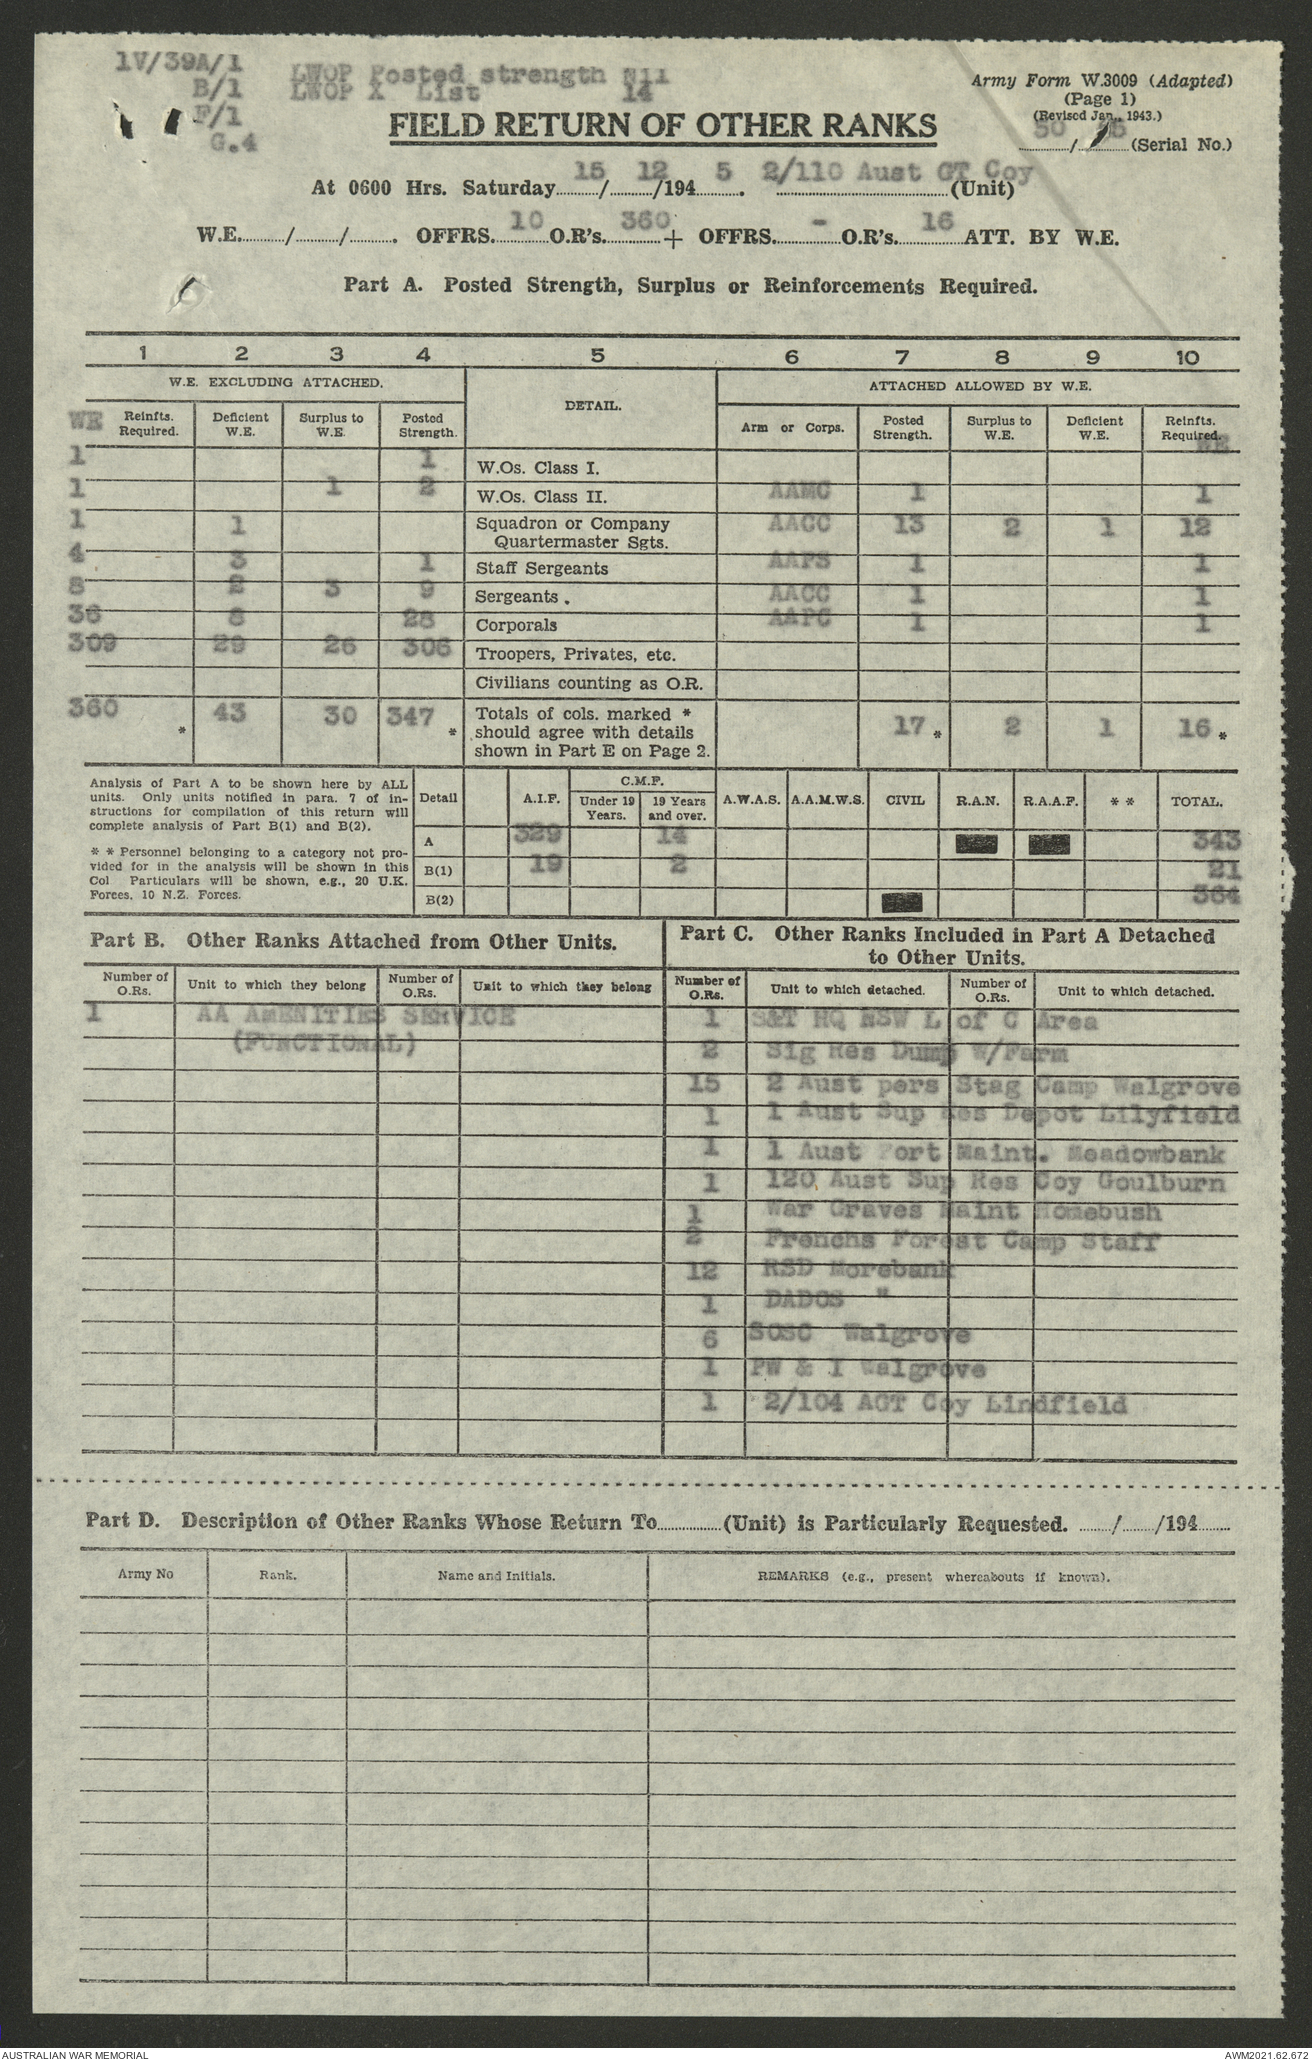 1V/39A/1
B/1
F/1
G.4
LWOP Posted strength Nil
LWOP X List 14
Army Form W.3009 (Adapted)
(Page 1)
(Revised Jan., 1943.)
50 / (Serial No.)
FIELD RETURN OF OTHER RANKS
At 0600 Hrs. Saturday 15 / 12 /194 5. 2/110 Aust GT Coy (Unit)
W.E. / / . OFFRS. 10 O.R's. 360 + OFFRS. - O.R's. 16 ATT. BY W.E.
Part A. Posted Strength, Surplus or Reinforcements Required.
1 2 3 4 5 6 7 8 9 10
W.E. EXCLUDING ATTACHED. DETAIL. ATTACHED ALLOWED BY W.E.
WE Reinfts. Required. Deficient W.E. Surplus to W.E. Posted Strength. Arm or Corps. Posted Strength. Surplus to W.E. Deficient W.E. Reinfts. Required. WE
1 1 W.Os. Class I.
1 1 2 W.Os. Class II. AAMC 1 1
1 1 Squadron or Company Quartermaster Sgts. AACC 13 2 1 12
4 3 1 Staff Sergeants AAPS 1 1
8 2 3 9 Sergeants . AACC 1 1
36 8 28 Corporals AAPC 1 1
309 29 26 306 Troopers, Privates, etc.
Civilians counting as O.R.
360 * 43 30 347 * Totals of cols. marked * should agree with details shown in Part E on Page 2. 17 * 2 1 16 *
Analysis of Part A to be shown here by ALL
units. Only units notified in para. 7 of in-
structions for compilation of this return will
complete analysis of Part B(1) and B(2).
* * Personnel belonging to a category not pro-
vided for in the analysis will be shown in this
Col Particulars will be shown, e.g., 20 U.K.
Forces, 10 N.Z. Forces.
Detail A.I.F. C.M.F. Under 19 Years. 19 Years and over. A.W.A.S. A.A.M.W.S. CIVIL R.A.N. R.A.A.F. * * TOTAL.
A 329 14 343
B(1) 19 2 21
B(2) 364
Part B. Other Ranks Attached from Other Units.
Number of O.Rs. Unit to which they belong Number of O.Rs. Unit to which they belong
1 AA AMENITIES SERVICE
(FUNCTIONAL)
Part C. Other Ranks Included in Part A Detached
to Other Units.
Number of O.Rs. Unit to which detached. Number of O.Rs. Unit to which detached.
1 S&T HQ NSW L of C Area
2 Sig Res Dump W/Farm
15 2 Aust pers Stag Camp Walgrove
1 1 Aust Sup Res Depot Lilyfield
1 1 Aust Port Maint. Meadowbank
1 120 Aust Sup Res Coy Goulburn
1 War Graves Maint Homebush
2 Frenchs Forest Camp Staff
12 RSD Morebank
1 DADOS "
6 SOSC Walgrove
1 PW & I Walgrove
1 2/104 AGT Coy Lindfield
Part D. Description of Other Ranks Whose Return To (Unit) is Particularly Requested. / /194
Army No Rank. Name and Initials. REMARKS (e.g., present whereabouts if known).
AUSTRALIAN WAR MEMORIAL
AWM2021.62.672